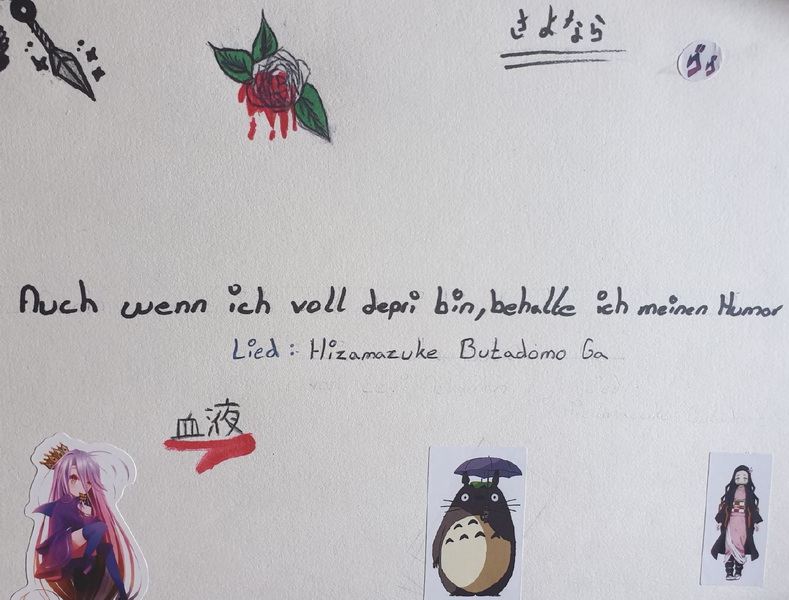 さよなら
ゴゴ
Auch wenn ich voll depri bin, behalte ich meinen Humor
Lied: Hizamazuke Butadomo Ga
血液